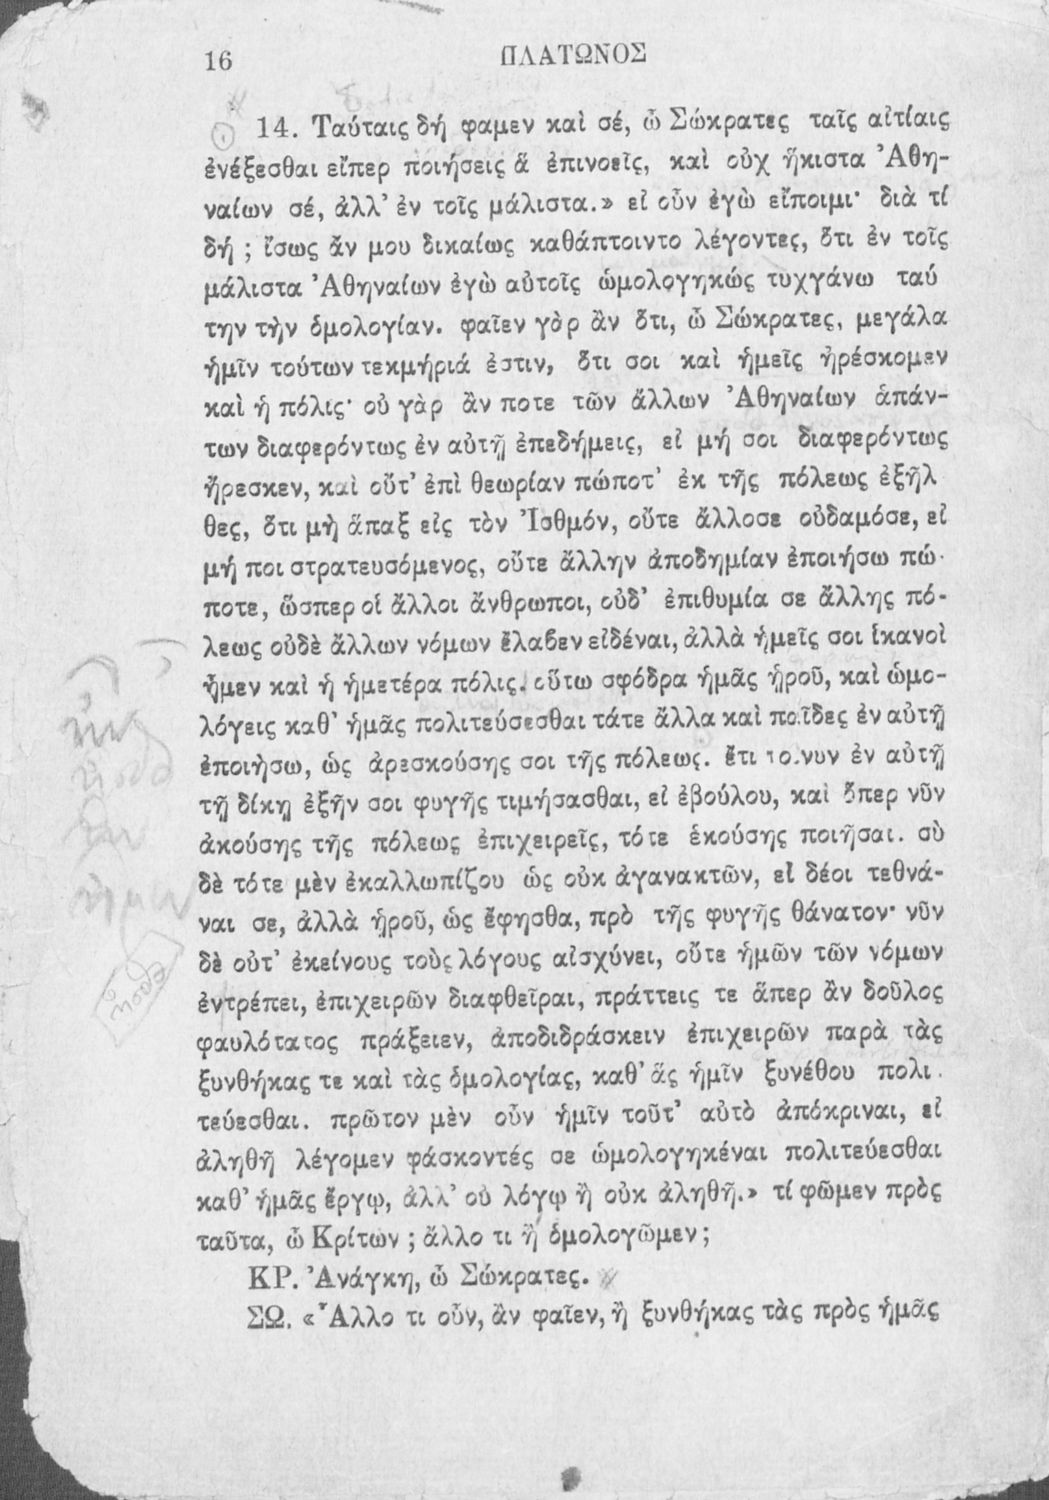 16
ΠΛΑΤΩΝΟΣ
14. Ταύταις δή φαμεν καὶ σέ, ὦ Σώκρατες ταῖς αἰτίαις
ἐνέξεσθαι εἴπερ ποιήσεις ἃ ἐπινοεῖς, καὶ οὐχ ἥκιστα Ἀθη-
ναίων σέ, ἀλλ’ ἐν τοῖς μάλιστα.» εἰ οὖν ἐγὼ εἴποιμι· διὰ τί
δή ; ἴσως ἄν μου δικαίως καθάπτοιντο λέγοντες, ὅτι ἐν τοῖς
μάλιστα Ἀθηναίων ἐγὼ αὐτοῖς ὡμολογηκώς τυχγάνω ταύ
την τὴν ὁμολογίαν. φαῖεν γὰρ ἂν ὅτι, ὦ Σώκρατες, μεγάλα
ἡμῖν τούτων τεκμήριά ἐστιν, ὅτι σοι καὶ ἡμεῖς ἠρέσκομεν
καὶ ἡ πόλις· οὐ γὰρ ἄν ποτε τῶν ἄλλων Ἀθηναίων ἁπάν-
των διαφερόντως ἐν αὐτῇ ἐπεδήμεις, εἰ μή σοι διαφερόντως
ἤρεσκεν, καὶ οὔτ’ ἐπὶ θεωρίαν πώποτ’ ἐκ τῆς πόλεως ἐξῆλ
θες, ὅτι μὴ ἅπαξ εἰς τὸν Ἰσθμόν, οὔτε ἄλλοσε οὐδαμόσε, εἰ
μή ποι στρατευσόμενος, οὔτε ἄλλην ἀποδημίαν ἐποιήσω πώ-
ποτε, ὥσπερ οἱ ἄλλοι ἄνθρωποι, οὐδ’ ἐπιθυμία σε ἄλλης πό-
λεως οὐδὲ ἄλλων νόμων ἔλαβεν εἰδέναι, ἀλλὰ ἡμεῖς σοι ἱκανοὶ
ἦμεν καὶ ἡ ἡμετέρα πόλις. οὕτω σφόδρα ἡμᾶς ᾑροῦ, καὶ ὡμο-
λόγεις καθ’ ἡμᾶς πολιτεύσεσθαι τάτε ἄλλα καὶ παῖδες ἐν αὐτῇ
ἐποιήσω, ὡς ἀρεσκούσης σοι τῆς πόλεως. ἔτι τοίνυν ἐν αὐτῇ
τῇ δίκῃ ἐξῆν σοι φυγῆς τιμήσασθαι, εἰ ἐβούλου, καὶ ὅπερ νῦν
ἀκούσης τῆς πόλεως ἐπιχειρεῖς, τότε ἑκούσης ποιῆσαι. σὺ
δὲ τότε μὲν ἐκαλλωπίζου ὡς οὐκ ἀγανακτῶν, εἰ δέοι τεθνά-
ναι σε, ἀλλὰ ᾑροῦ, ὡς ἔφησθα, πρὸ τῆς φυγῆς θάνατον· νῦν
δὲ οὐτ’ ἐκείνους τοὺς λόγους αἰσχύνει, οὔτε ἡμῶν τῶν νόμων
ἐντρέπει, ἐπιχειρῶν διαφθεῖραι, πράττεις τε ἅπερ ἂν δοῦλος
φαυλότατος πράξειεν, ἀποδιδράσκειν ἐπιχειρῶν παρὰ τὰς
ξυνθήκας τε καὶ τὰς ὁμολογίας, καθ’ ἃς ἡμῖν ξυνέθου πολι-
τεύεσθαι. πρῶτον μὲν οὖν ἡμῖν τοῦτ’ αὐτὸ ἀπόκριναι, εἰ
ἀληθῆ λέγομεν φάσκοντές σε ὡμολογηκέναι πολιτεύεσθαι
καθ’ ἡμᾶς ἔργῳ, ἀλλ’ οὐ λόγῳ ἢ οὐκ ἀληθῆ.» τί φῶμεν πρὸς
ταῦτα, ὦ Κρίτων ; ἄλλο τι ἢ ὁμολογῶμεν ;
ΚΡ. Ἀνάγκη, ὦ Σώκρατες.
ΣΩ. «Ἄλλο τι οὖν, ἂν φαῖεν, ἢ ξυνθήκας τὰς πρὸς ἡμᾶς